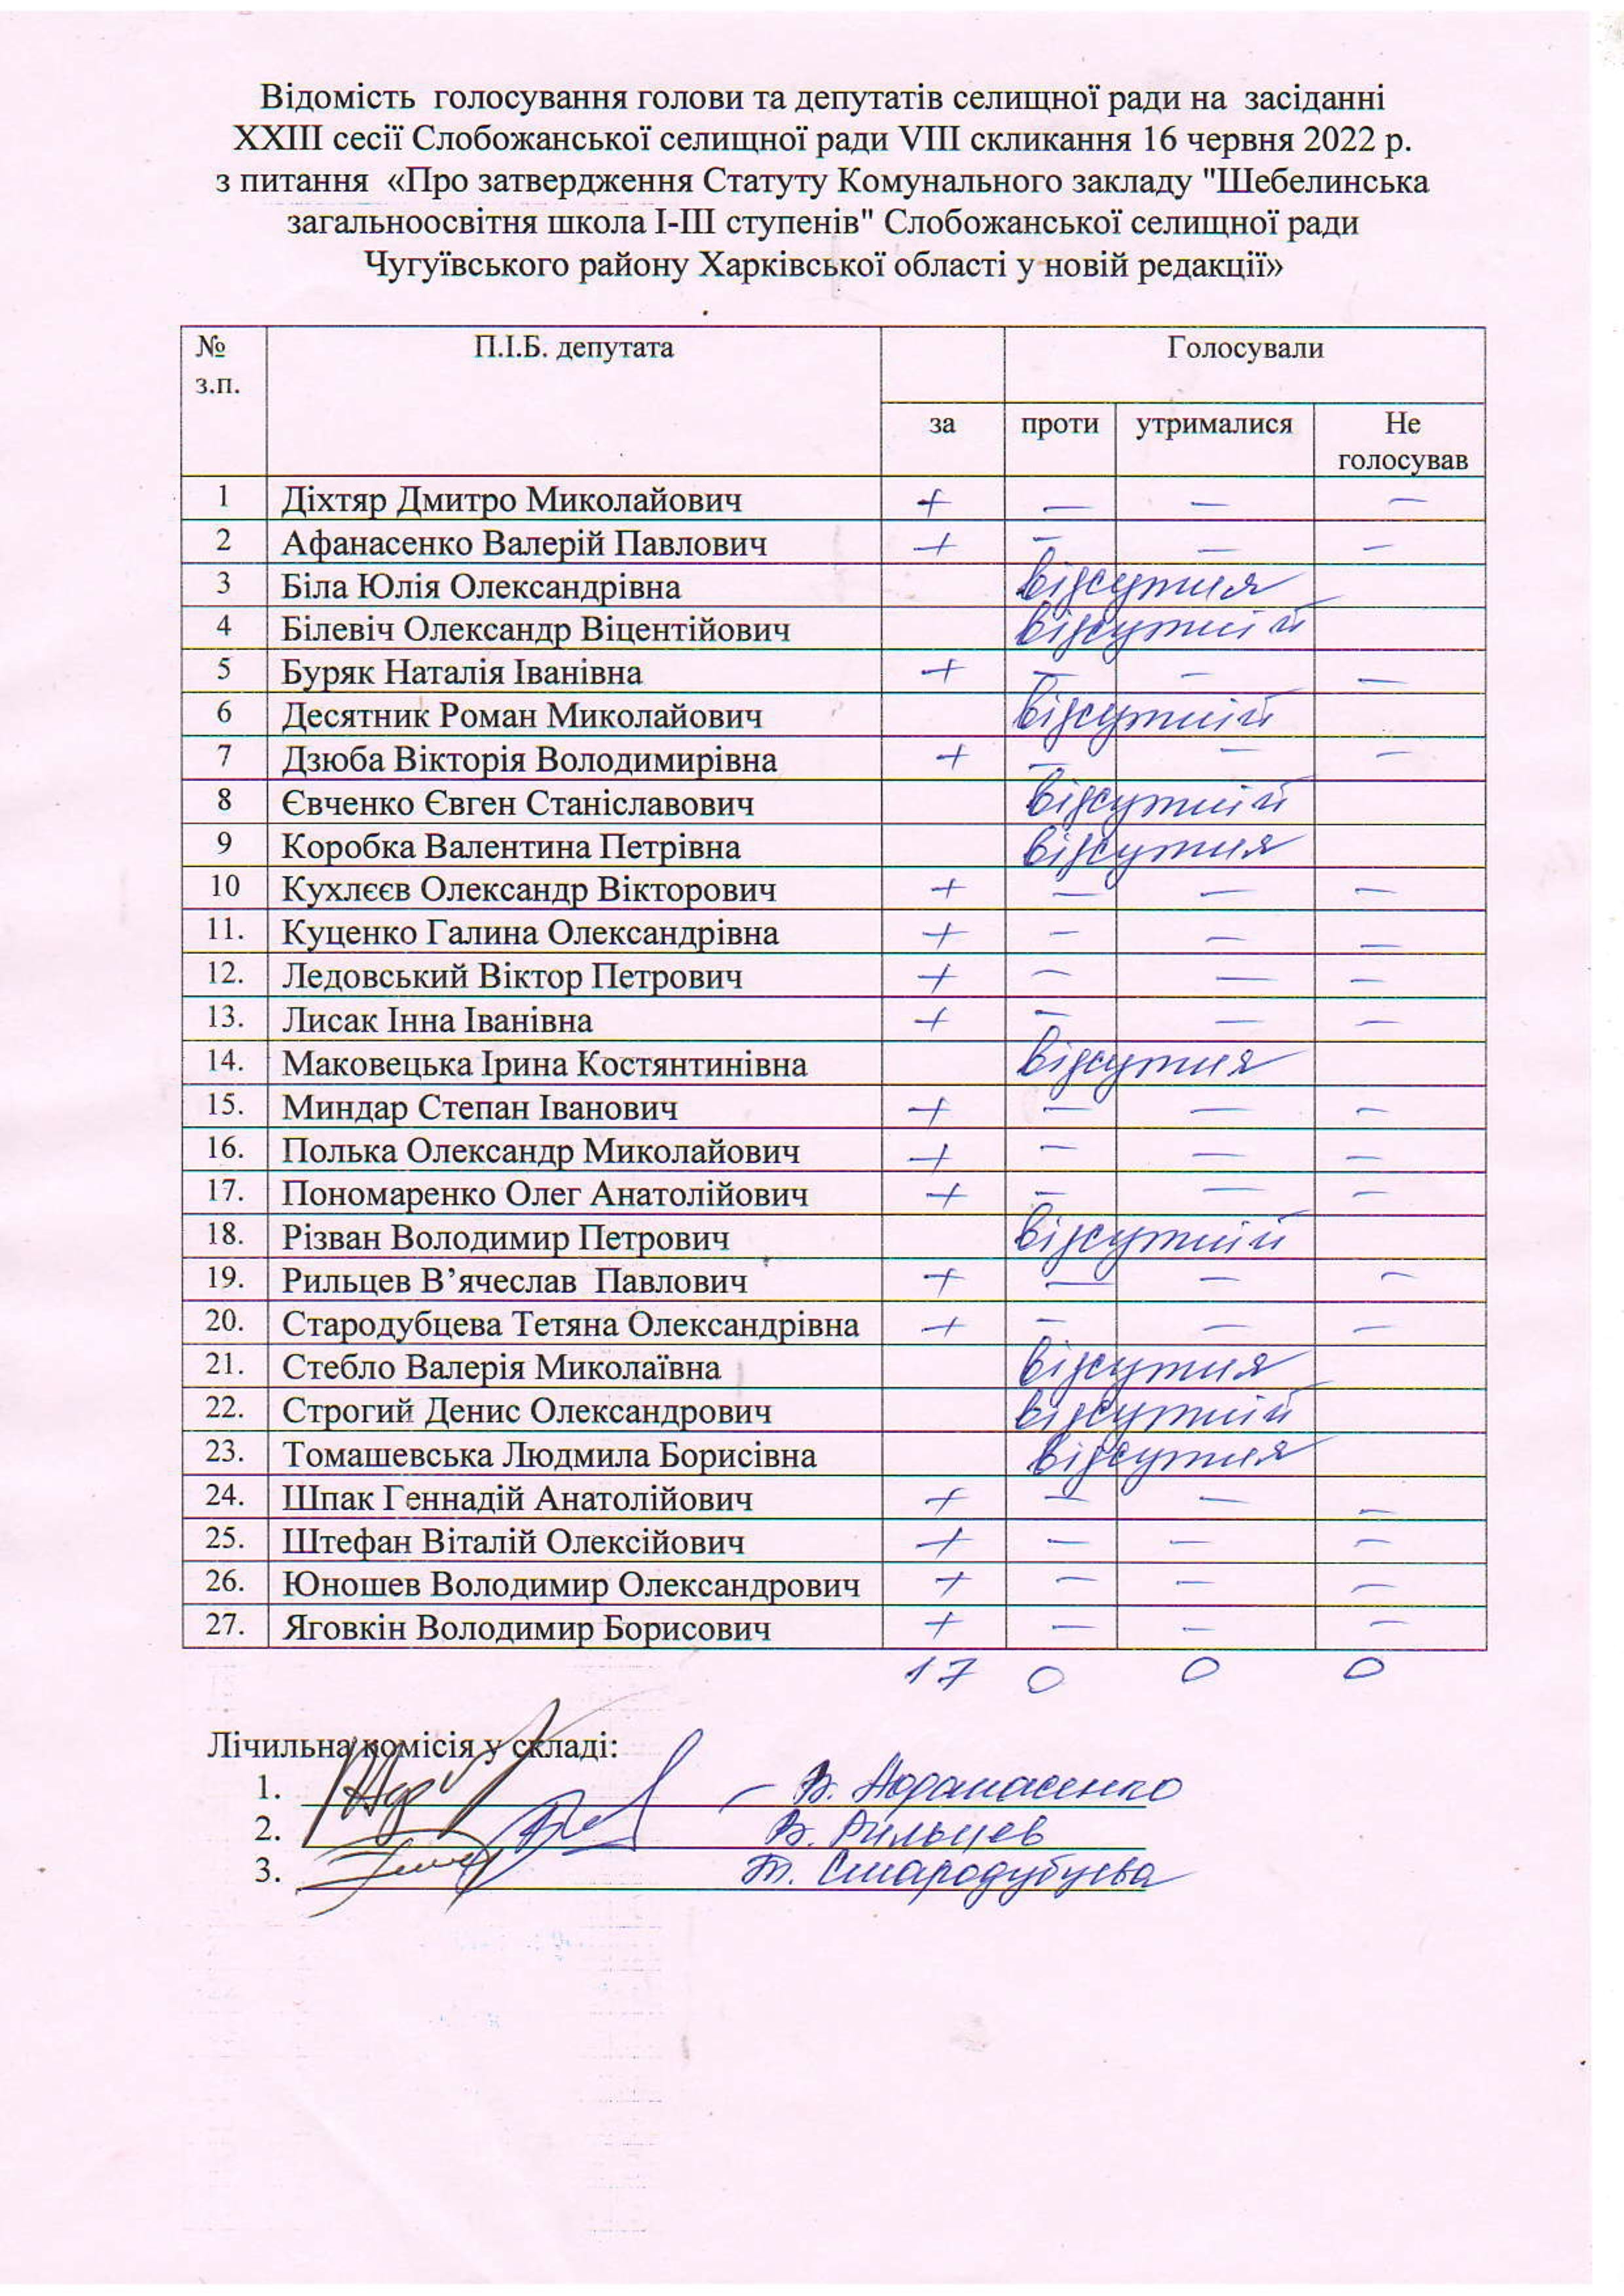 Відомість голосування голови та депутатів селищної ради на засіданні
XXIII сесії Слобожанської селищної ради VIII скликання 16 червня 2022 р.
з питання «Про затвердження Статуту Комунального закладу "Шебелинська
загальноосвітня школа I-III ступенів" Слобожанської селищної ради
Чугуївського району Харківської області у новій редакції»
№ з.п. П.І.Б. депутата Голосували
за проти утрималися Не голосував
1 Діхтяр Дмитро Миколайович + — — —
2 Афанасенко Валерій Павлович + — — —
3 Біла Юлія Олександрівна відсутня
4 Білевіч Олександр Віцентійович відсутній
5 Буряк Наталія Іванівна + — — —
6 Десятник Роман Миколайович відсутній
7 Дзюба Вікторія Володимирівна + — — —
8 Євченко Євген Станіславович відсутній
9 Коробка Валентина Петрівна відсутня
10 Кухлєєв Олександр Вікторович + — — —
11. Куценко Галина Олександрівна + — — —
12. Ледовський Віктор Петрович + — — —
13. Лисак Інна Іванівна + — — —
14. Маковецька Ірина Костянтинівна відсутня
15. Миндар Степан Іванович + — — —
16. Полька Олександр Миколайович + — — —
17. Пономаренко Олег Анатолійович + — — —
18. Різван Володимир Петрович відсутній
19. Рильцев В’ячеслав Павлович + — — —
20. Стародубцева Тетяна Олександрівна + — — —
21. Стебло Валерія Миколаївна відсутня
22. Строгий Денис Олександрович відсутній
23. Томашевська Людмила Борисівна відсутня
24. Шпак Геннадій Анатолійович + — — —
25. Штефан Віталій Олексійович + — — —
26. Юношев Володимир Олександрович + — — —
27. Яговкін Володимир Борисович + — — —
17 0 0 0
Лічильна комісія у складі:
1. В. Афанасенко
2. В. Рильцев
3. Т. Стародубцева